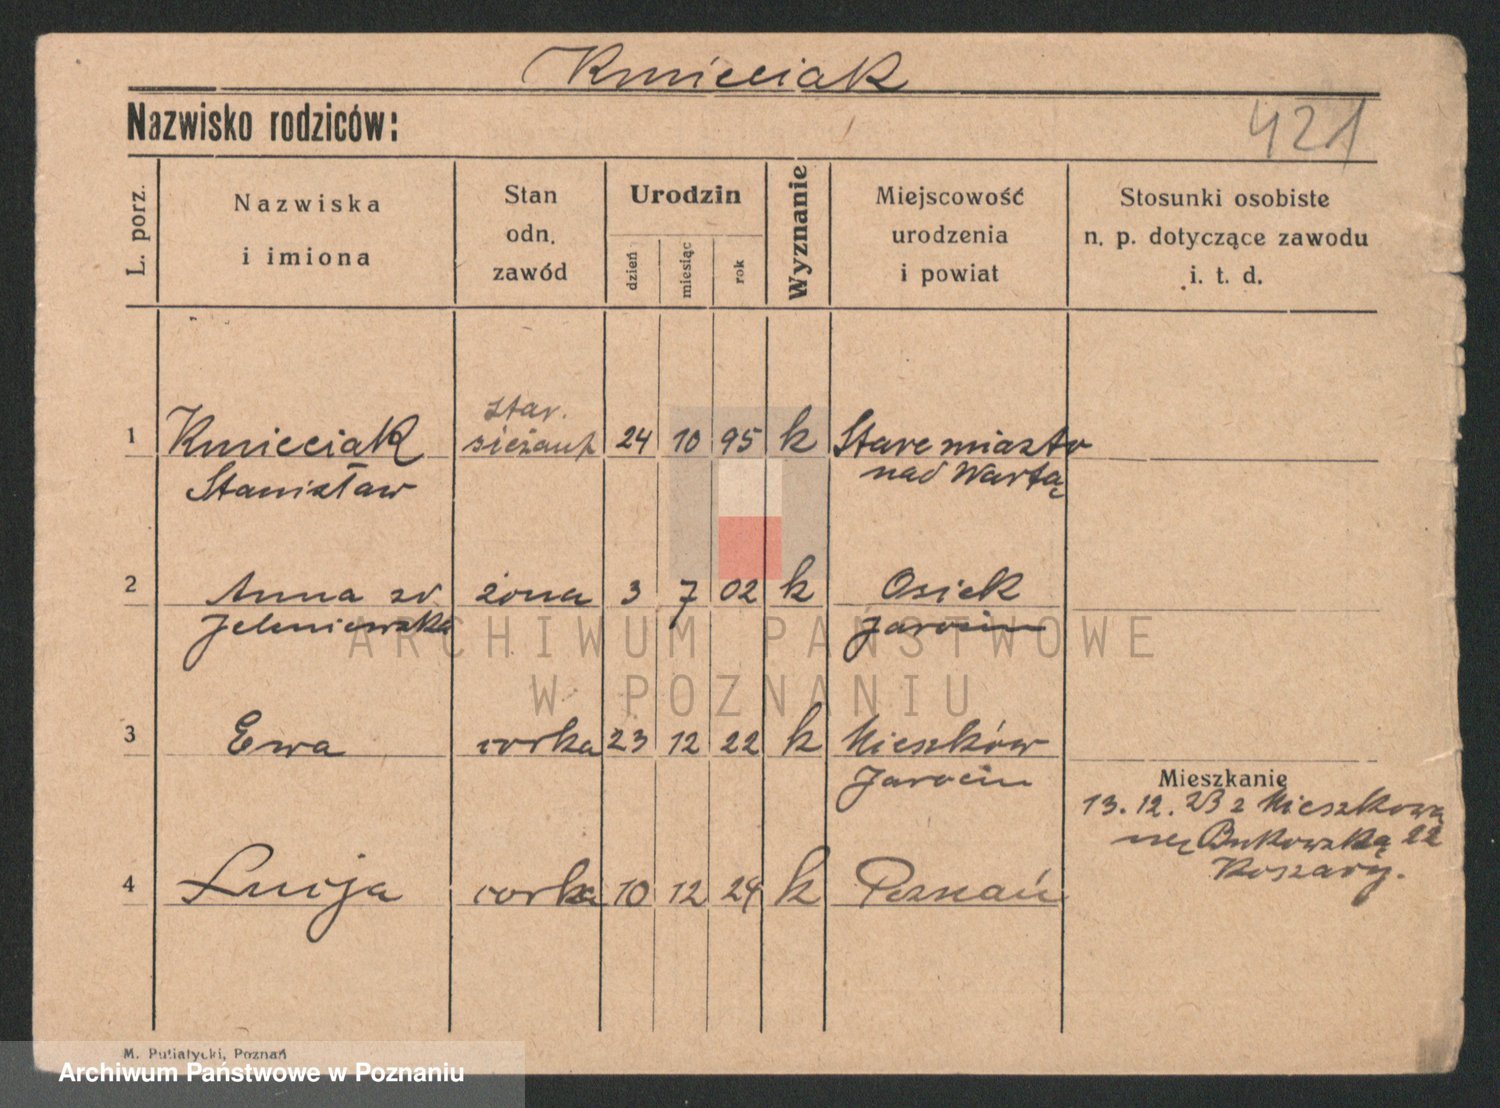 Kmieciak
Nazwisko rodziców:
421
L. porz.
Nazwiska
i imiona
Stan
odn.
zawód
Urodzin
dzień
miesiąc
rok
Wyznanie
Miejscowość
urodzenia
i powiat
Stosunki osobiste
n. p. dotyczące zawodu
i. t. d.
1 Kmieciak star. sierżant 24 10 95 k Staremiasto
Stanisław nad Wartą
2 Anna zd żona 3 7 02 k Osiek
Jeleniewska Jarocin
ARCHIWUM PAŃSTWOWE
W POZNANIU
3 Ewa corka 23 12 22 k Mieszków
Jarocin
Mieszkanie
13. 12. 23 z Mieszkowa
Bukowską 22
Koszary.
4 Lucja corka 10 12 24 k Poznań
M. Putiatycki, Poznań
Archiwum Państwowe w Poznaniu